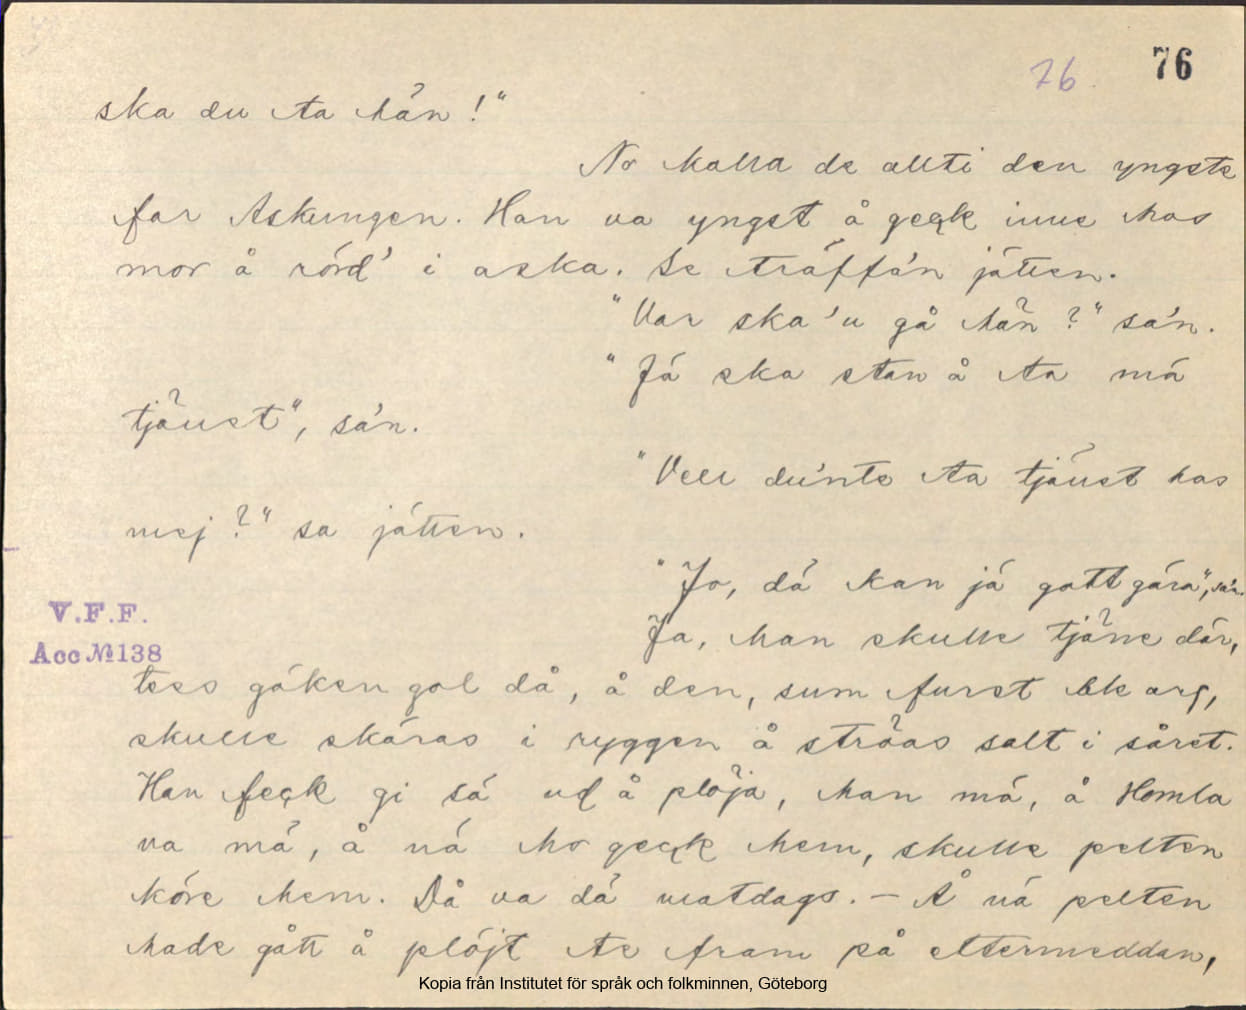 76 76
ska du ta hän!"
No kalla de allti den yngste
far Askungen. Han va yngst å geçk inne has
mor å rörd' i aska. Se träffa'n jätten.
"Var ska'u gå hän?" sa'n.
"Já ska stan å ta má
tjänst", sa'n.
"Vell du'nte ta tjänst has
mej?" sa jätten.
"Jo, dá kan já gott gára", sa'n.
Ja, han skulle tjäne där,
tess göken gol då, å den, sum furst ble arg,
skulle skäras i ryggen å ströas salt i såret.
Han feçk gi sá ud å plöja, han má, å Homla
va má, å ná ho geçk hem, skulle pelten
köre hem. Då va dá matdags. – Å ná pelten
hade gått å plöjt te fram på ettermeddan,
V.F.F.
Acc №138
Kopia från Institutet för språk och folkminnen, Göteborg